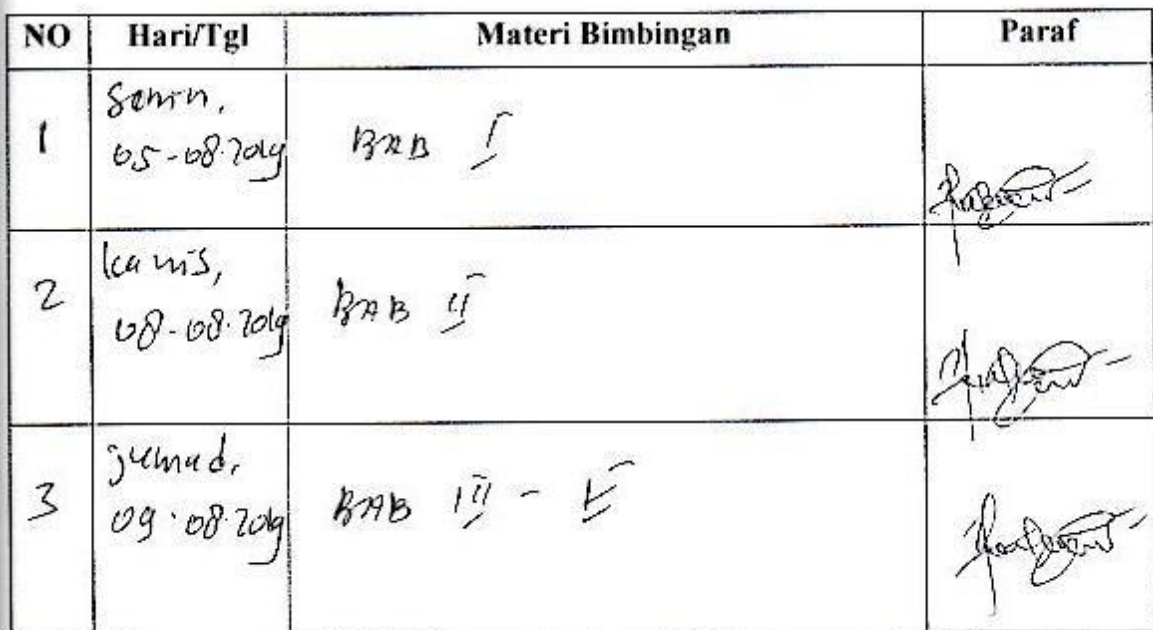 NO Hari/Tgl Materi Bimbingan Paraf
1 Senin, 05-08-2019 BAB I
2 kamis, 08-08-2019 BAB II
3 jumad, 09-08-2019 BAB III - V